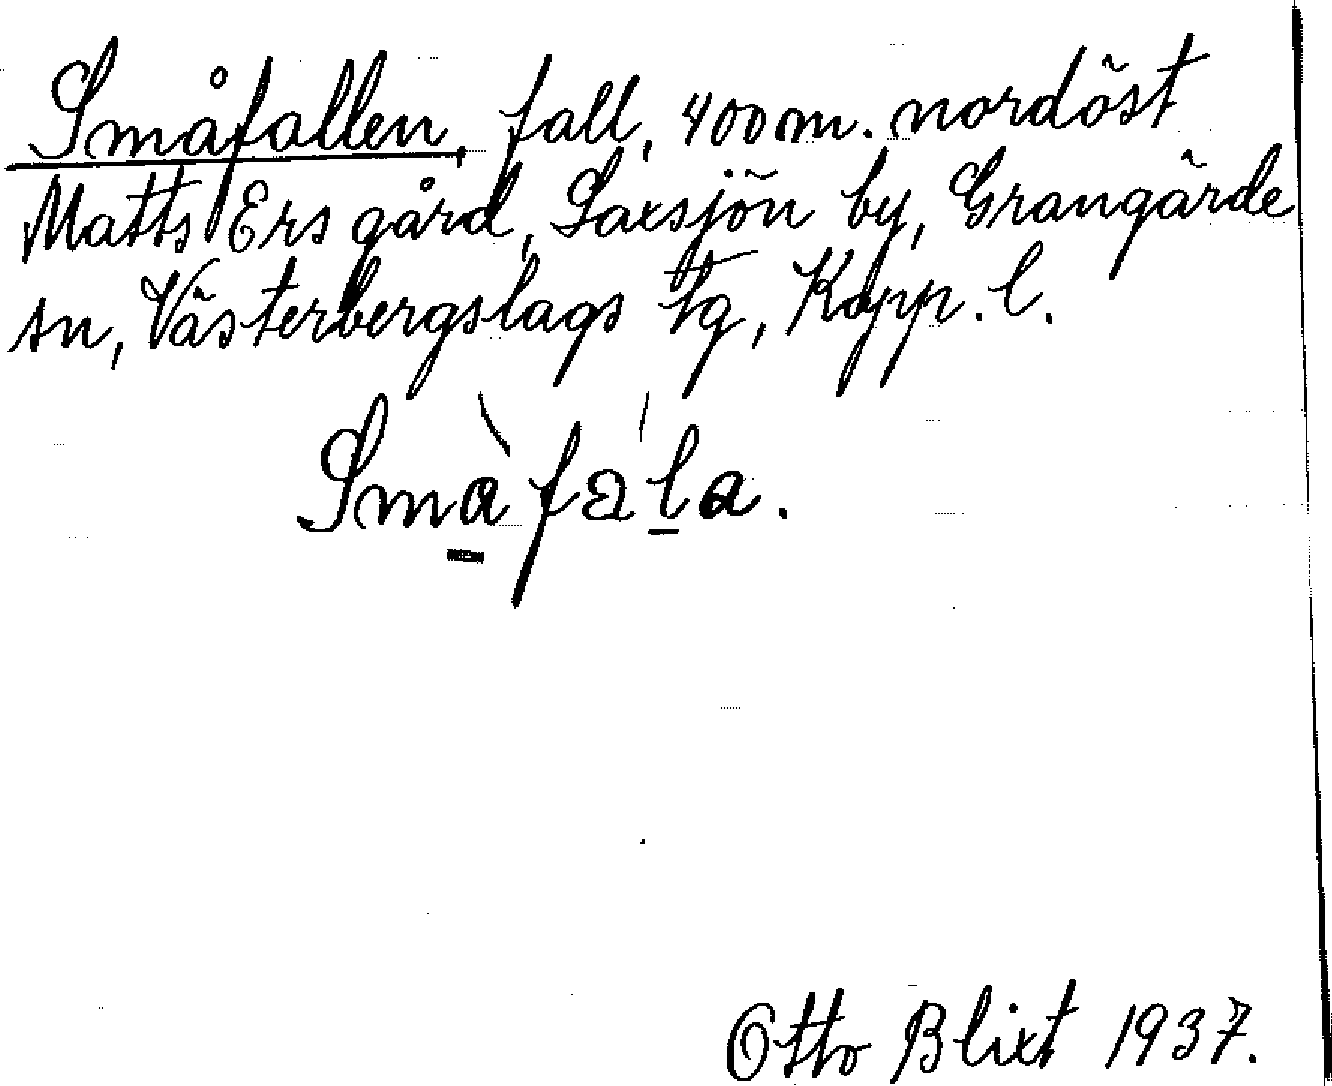 Småfallen, fall, 400 m. nordöst
Matts Ers gård, Saxsjön by, Grangärde
sn, Västerbergslags tg, Kopp. l.
Smàfa̍la.
Otto Blixt 1937.